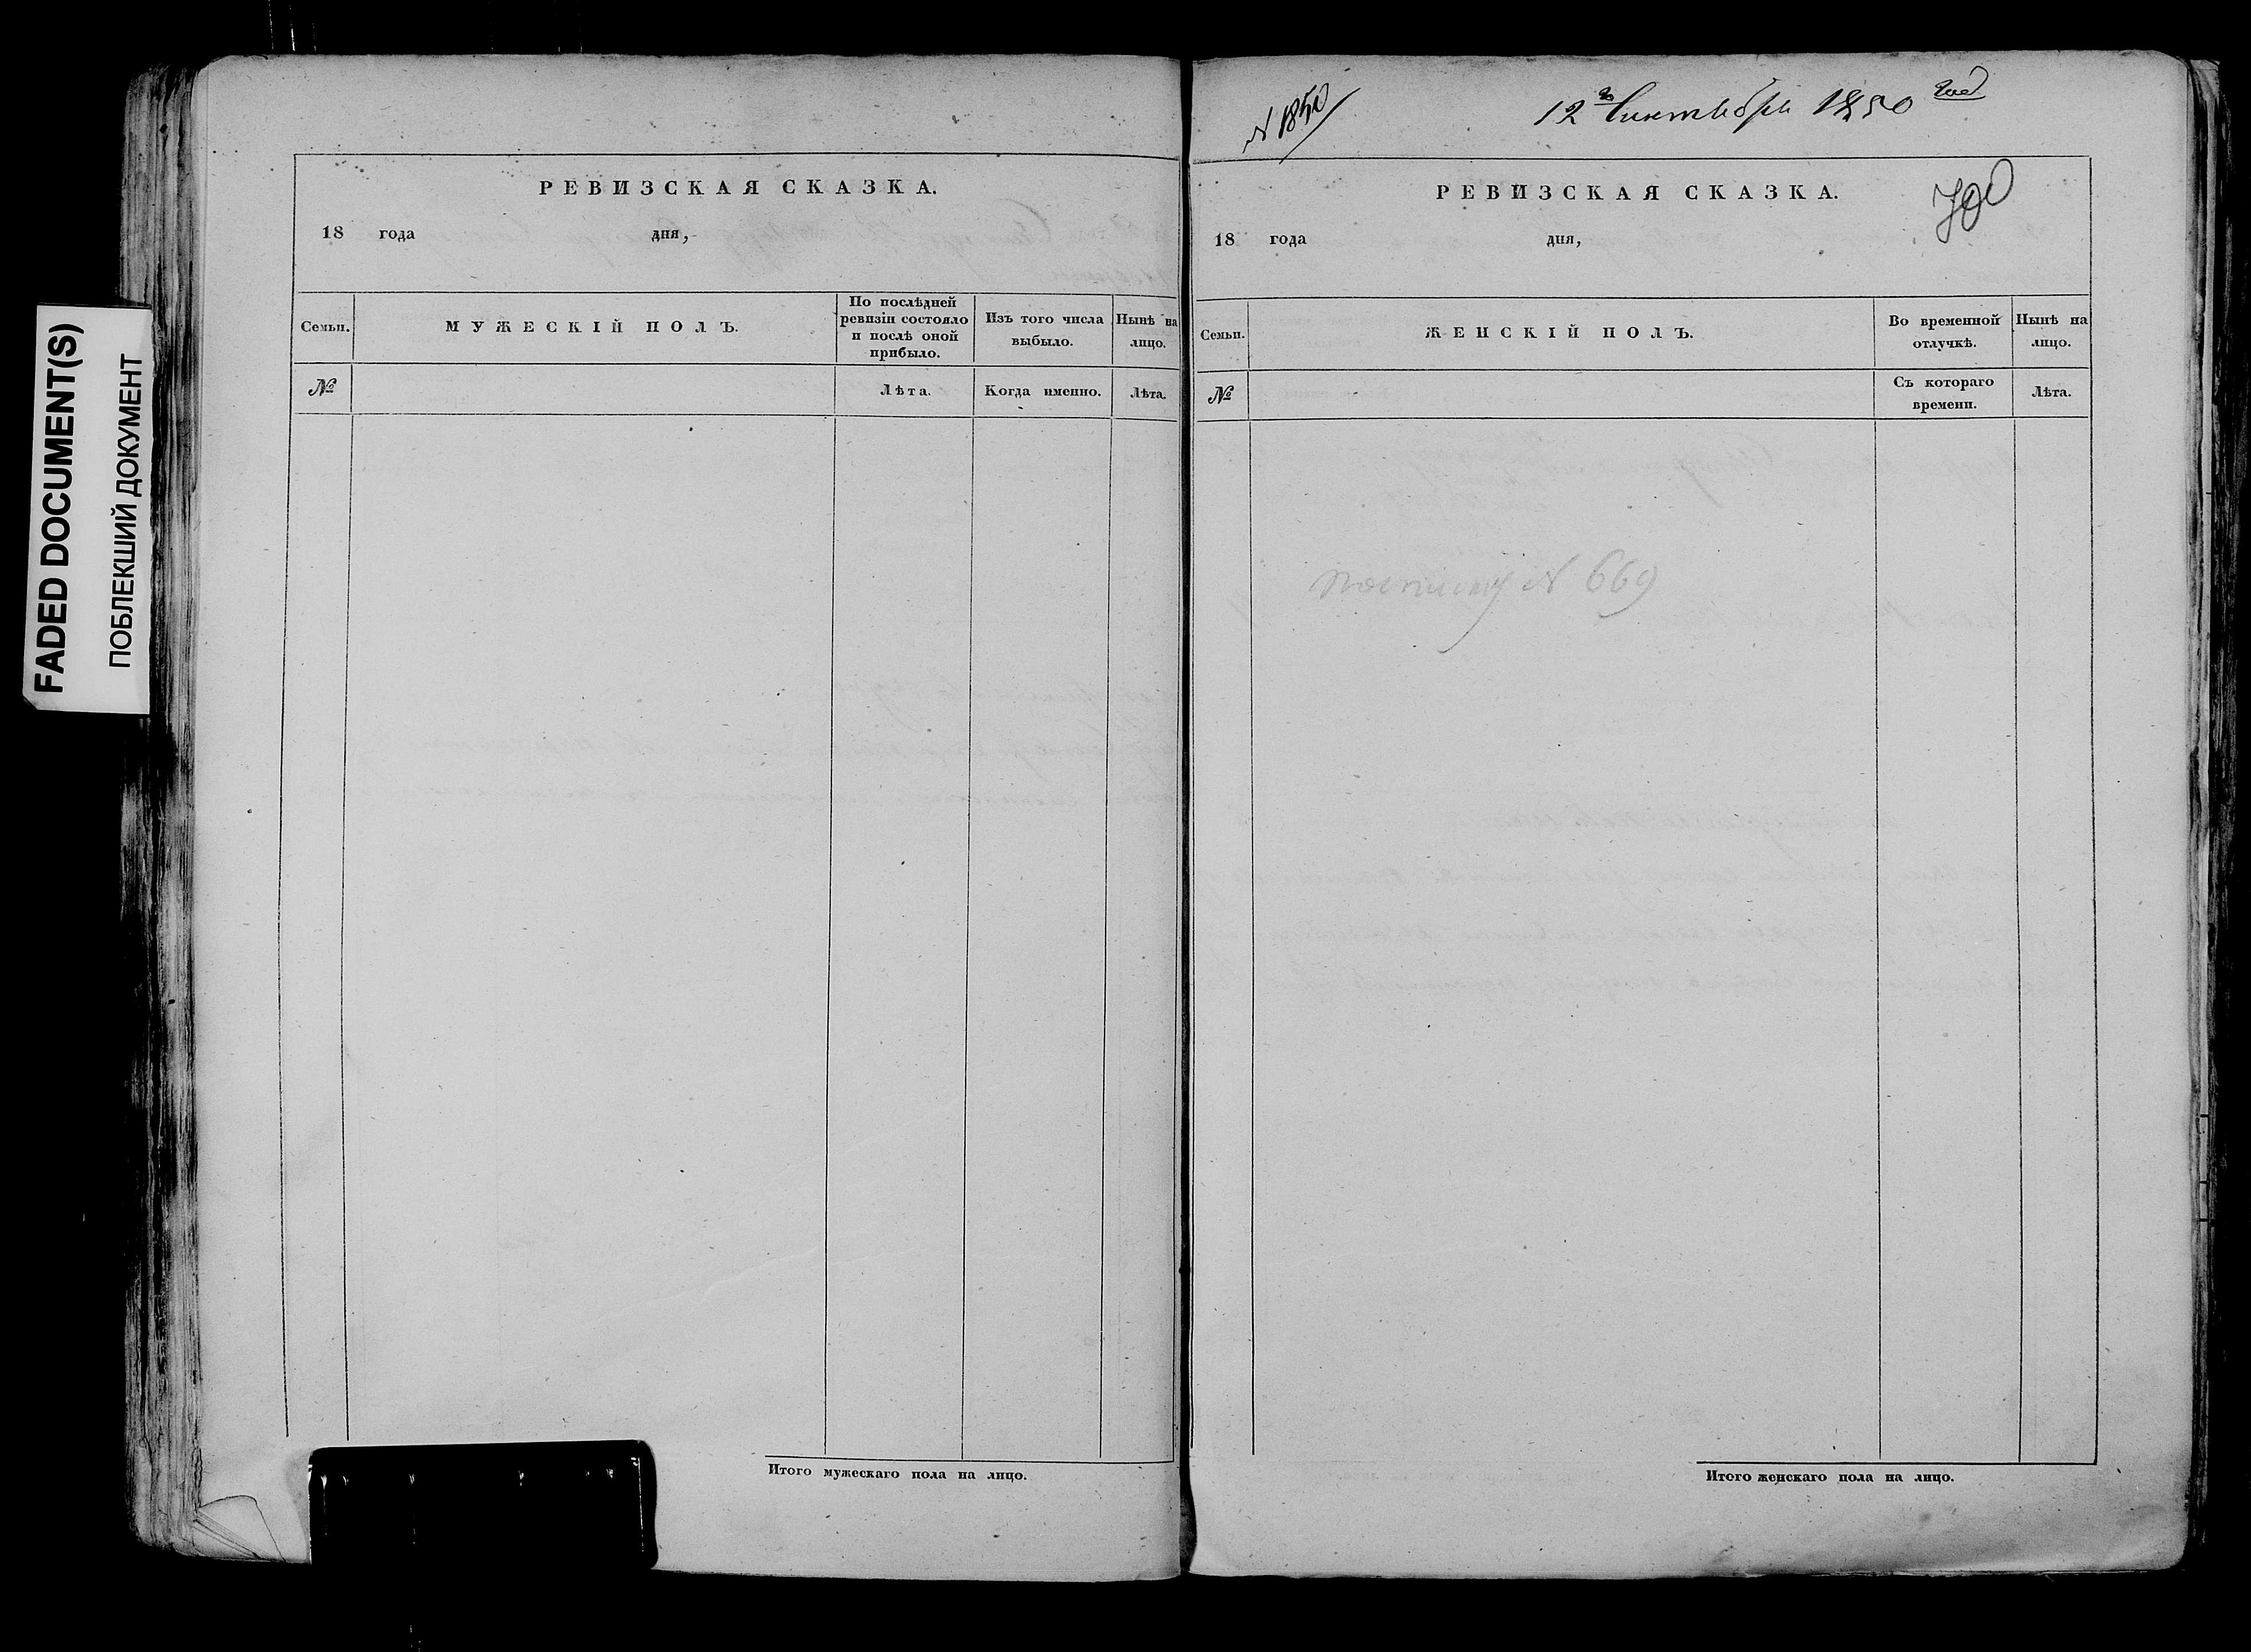 FADED DOCUMENT(S)
ПОБЛЕКШИЙ ДОКУМЕНТ
РЕВИЗСКАЯ СКАЗКА.
18 года дня,
Семьи. МУЖЕСКІЙ ПОЛЪ. По послѣдней ревизіи состояло и послѣ оной прибыло. Изъ того числа выбыло. Нынѣ на лицо.
№ Лѣта. Когда именно. Лѣта.
Итого мужескаго пола на лицо.
N 1850
12 го Сентября 1850 год
РЕВИЗСКАЯ СКАЗКА.
700
18 года дня,
Семьи. ЖЕНСКІЙ ПОЛЪ. Во временной отлучкѣ. Нынѣ на лицо.
№ Съ котораго времени. Лѣта.
N 669
Итого женскаго пола на лицо.